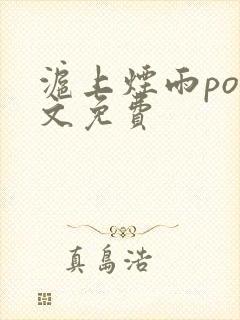 滬上煙雨po
文免費
真島浩